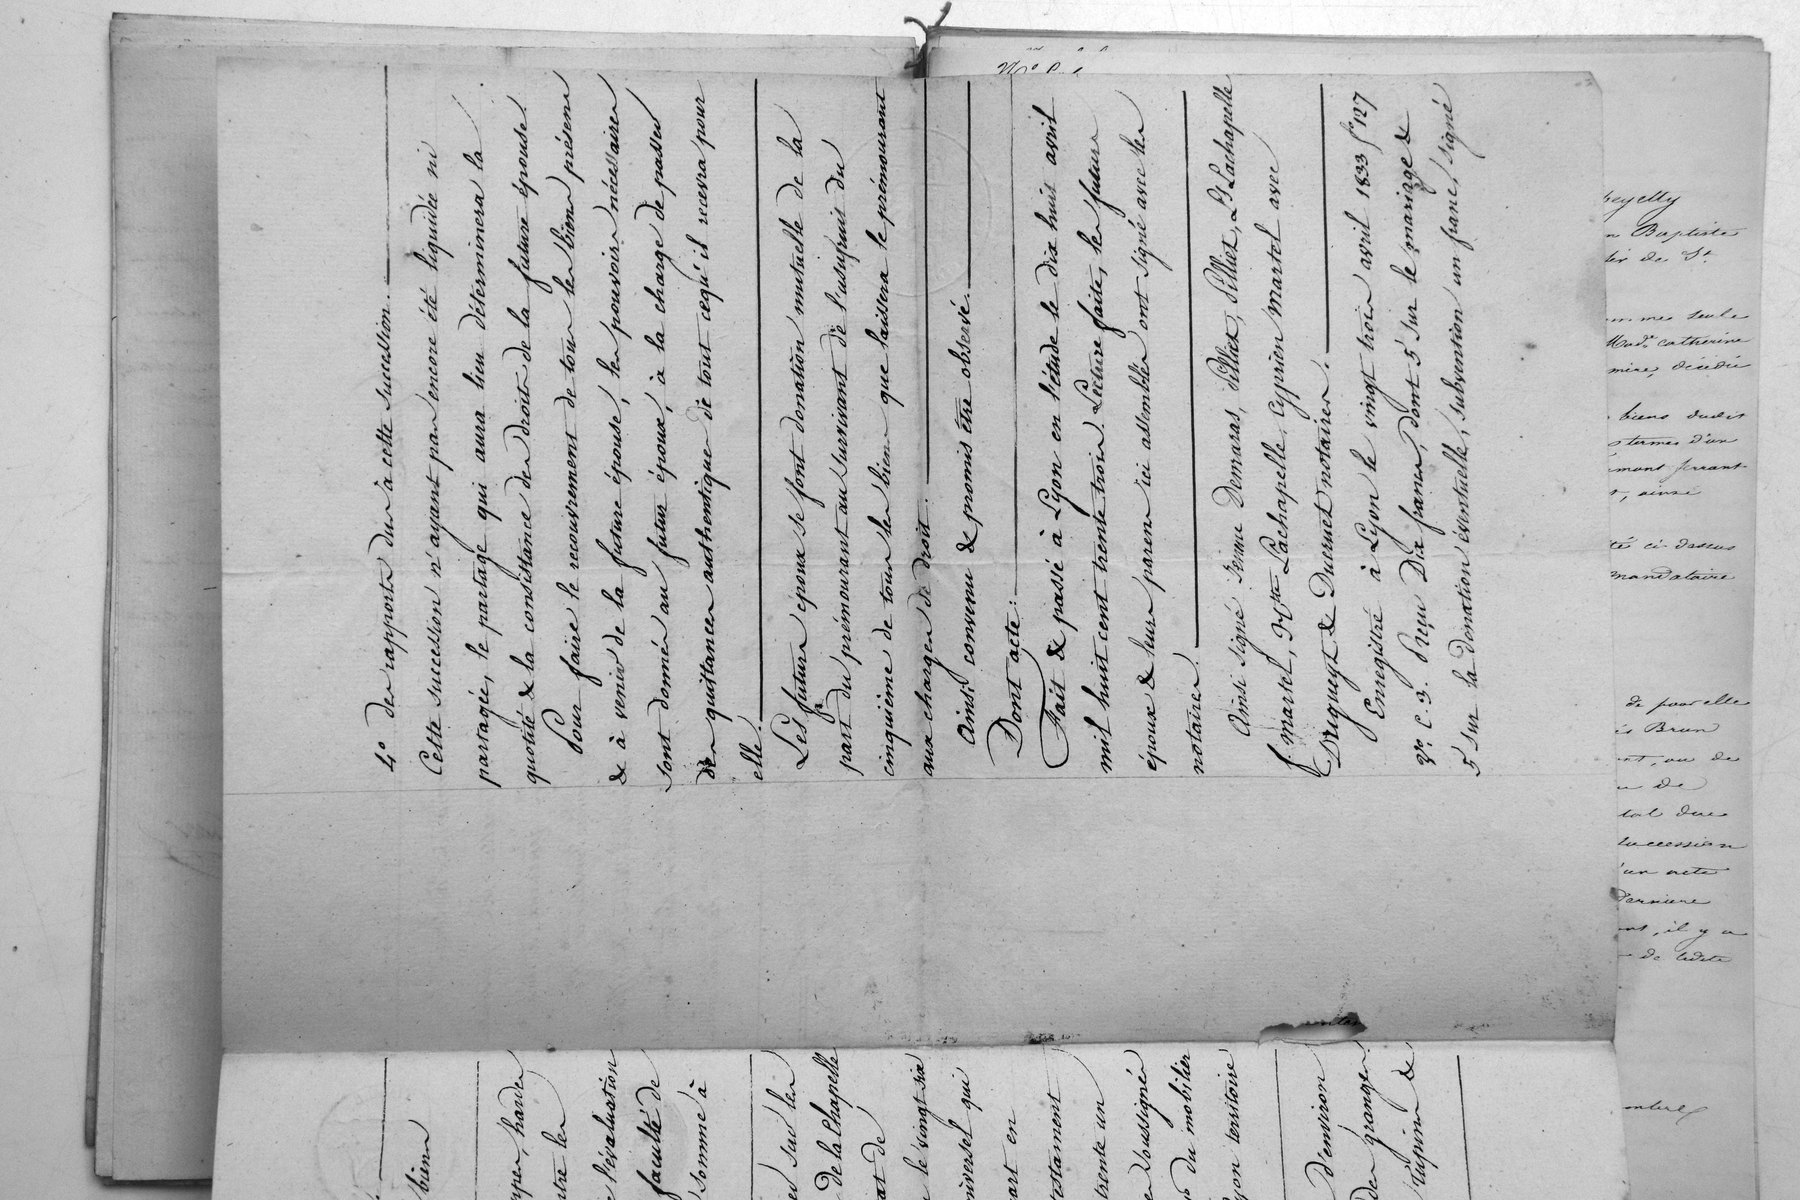 4° des rapports dus à cette succession.
Cette succession n'ayant pas encore été liquidée ni
partagée, le partage qui aura lieu déterminera la
quotité & la consistance des droits de la future épouse.
Pour faire le recouvrement de tous les biens présens
& à venir de la future épouse, les pouvoirs nécessaires
sont donnés au futur époux, à la charge de passer
des quittances authentiques de tout cequ'il recevra pour
elle.
Les futurs époux se font donation mutuelle de la
part du prémourant au survivant de l'usufruit du
cinquième de tous les biens que laissera le prémourant
aux charges de droit.
Ainsi convenu & promis être observé.
Dont acte:
Fait & passé à Lyon en l'étude le dix huit avril
mil huit cent trente trois. Lecture faite, les futurs
époux & leurs parens ici assemblés ont signé avec les
notaires.
Ainsi signé femme Demaras, Pilliet, Pilliet, Lt Lachapelle
f. martel, Vor Lachapelle, Cyprien Martel avec
Dugueyt & Ducruet notaires.
Enregistré à Lyon le vingt trois avril 1833 f° 127
vo. C. 3. Reçu Dix francs, dont 5f sur le mariage &
5f sur la donation éventuelle, subvention un franc, signé
peyelly
n Baptiste
de St
mes seule
Made catherine
mère, décédée
biens dudit
termes d'un
mont ferrant
ainsi
té ci dessus
mandataire
de pour elle
Brun
ou de
de
succession
un acte
dernière
il y a
de ladite
biens
hardes
ntre les
l'évaluation
faculté de
somme à
sur les
De la Chapelle
at de
le vingt six
niversel qui
art en
estament
trente un
soussignés
du mobilier
yon territoire
d'environ
des granges
Tupins &